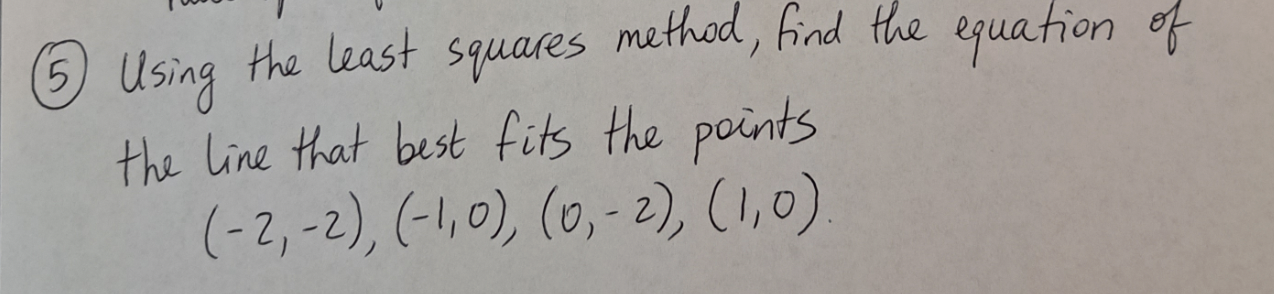 ⑤ Using the least squares method, find the equation of
the line that best fits the points
(-2,-2), (-1,0), (0,-2), (1,0).